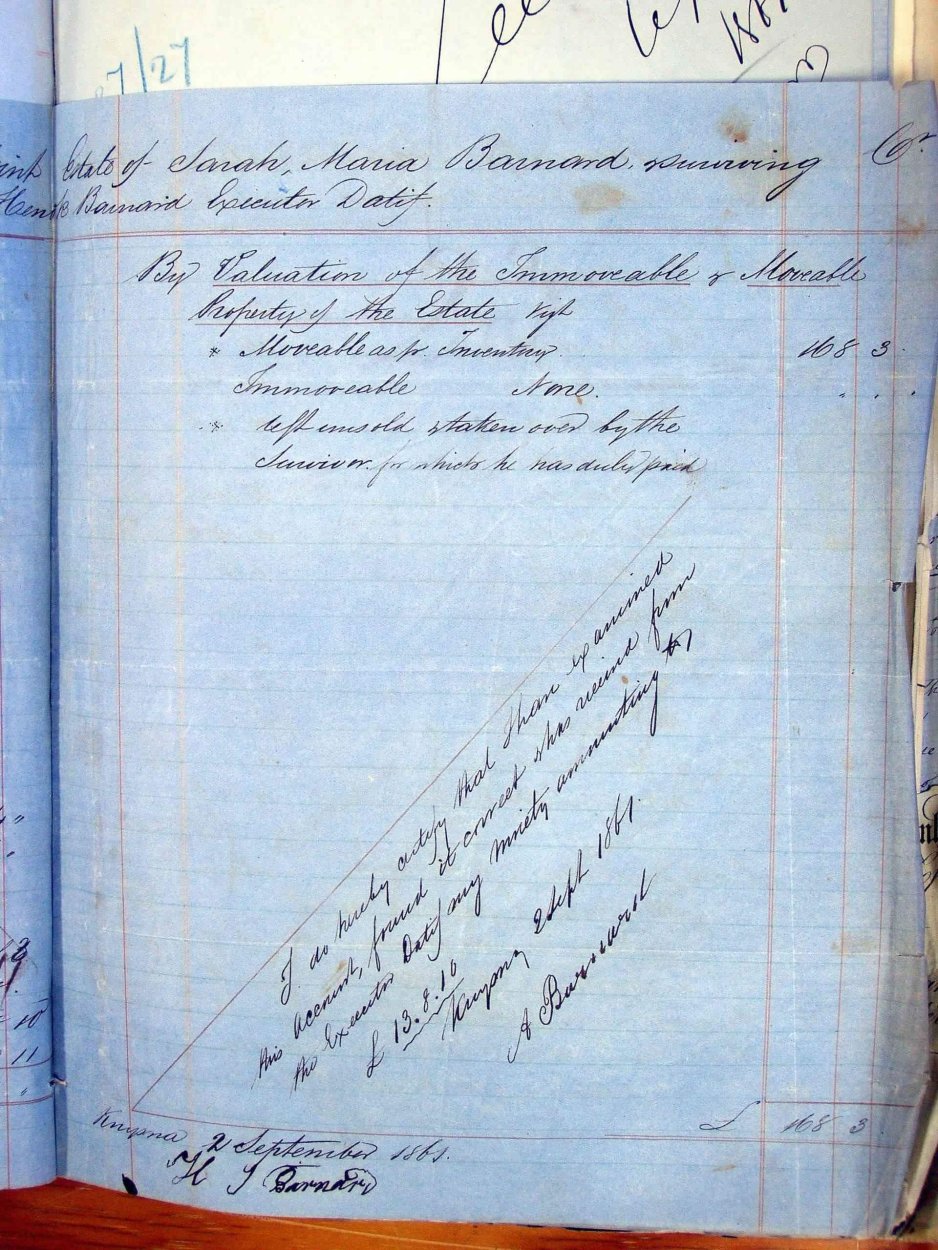 7/27
Estate of Sarah, Maria Barnard, surviving Cr
Barnard Executor Datif.
By Valuation of the Immoveable & Moveable
Property of the Estate Vizt
* Moveable as pr. Inventory 168 3
Immoveable None.
* left unsold & taken over by the
Survivor. for which he has duly paid
I do hereby certify that I have examined
this account, found it correct & has received from
the Executor Datif my moiety amounting to
£ 13.8.10
Knysna 2 Sept 1861.
A Barnard
£ 168 3
Knysna 2 September 1861.
H J Barnard